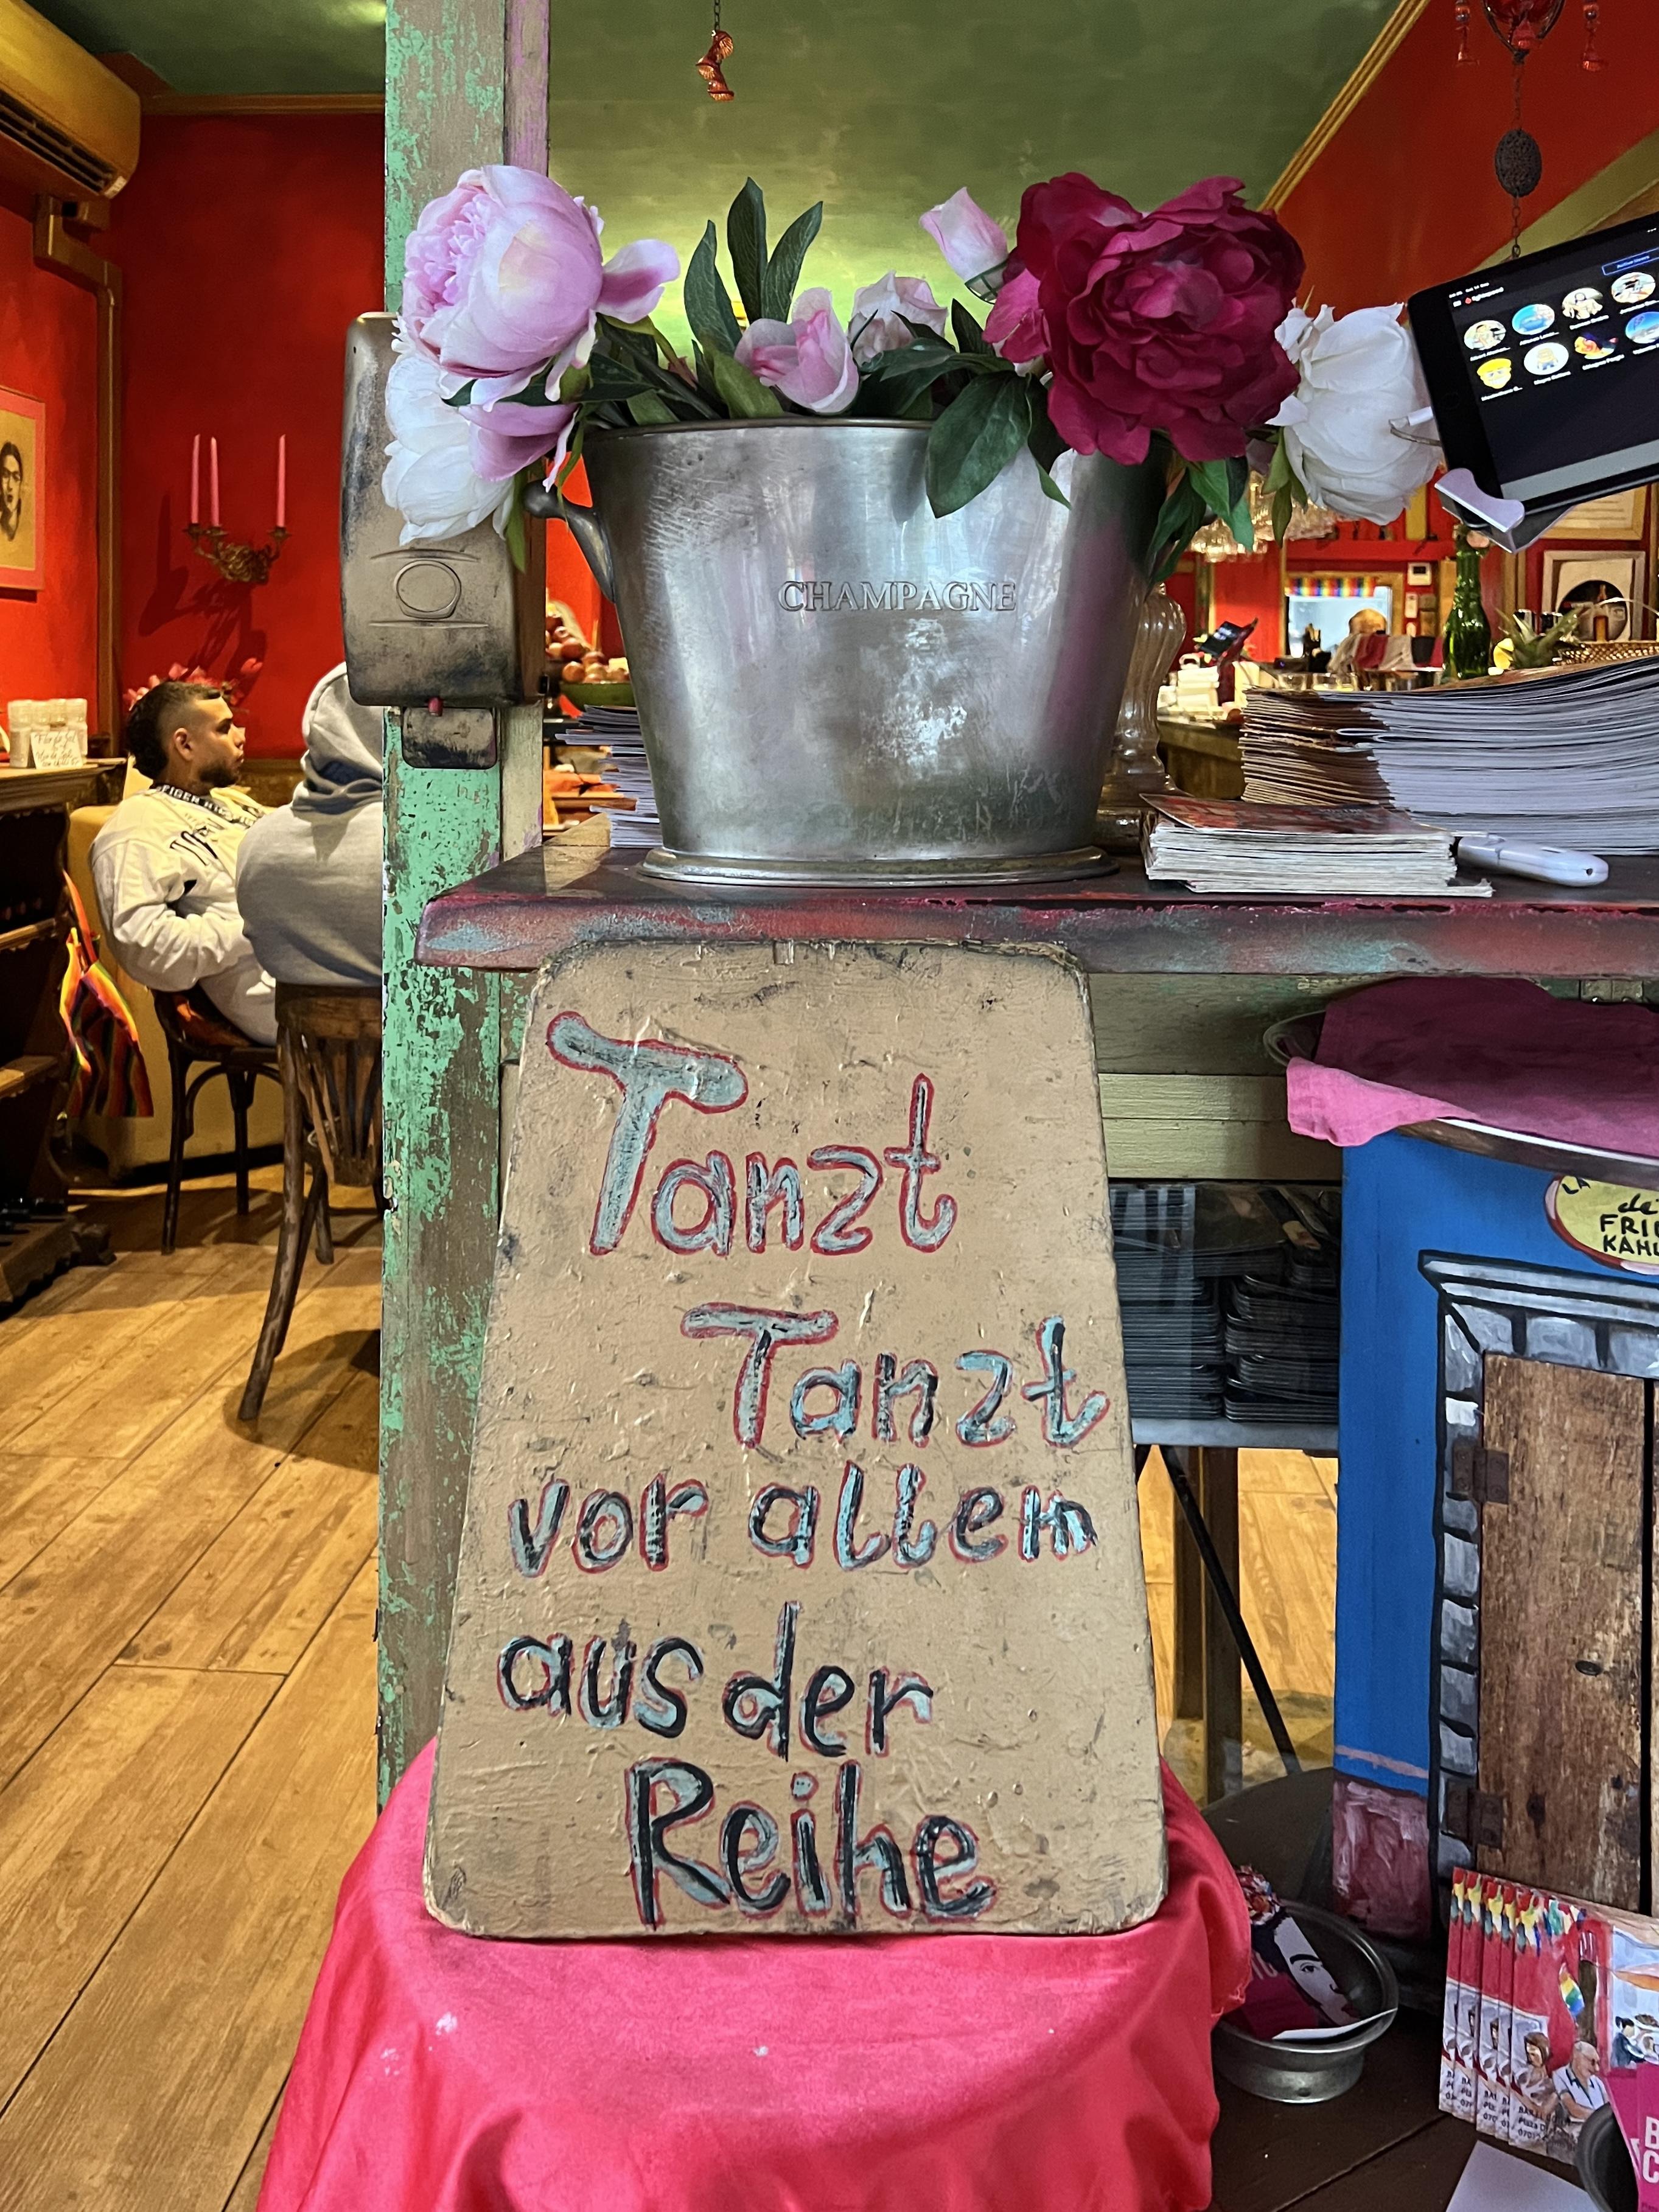 CHAMPAGNE
Tanzt
Tanzt
vor allem
aus der
Reihe
LA
de
FRI
KAH